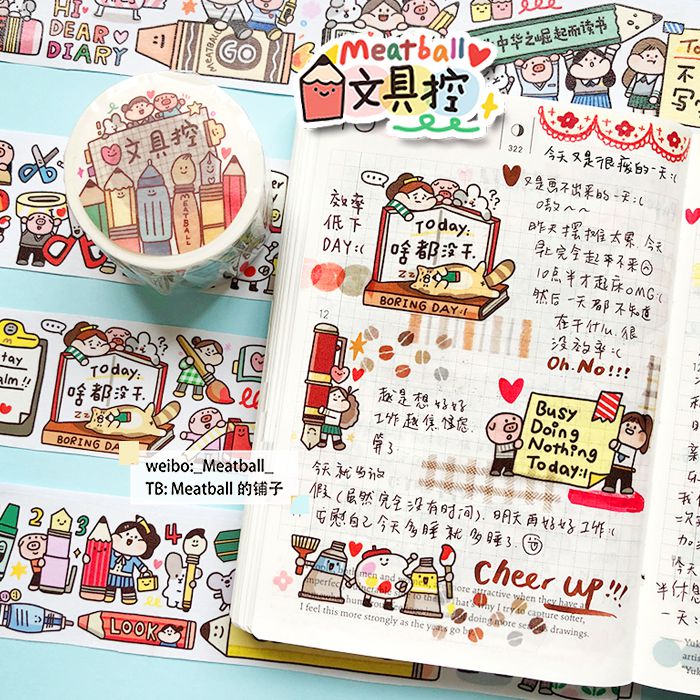 HI
DEAR
DIARY
MEATBALL
GO
中华之崛起而读书
不
写
Meatball
文具控
文具控
MEATBALL
322
今天又是很疲的一天:(
又是画不出来的一天:(
嗷~~
昨天摆摊太累 今天
早上完全起不来
10点半才起床OMG:(
然后一天都不知道
在干什么 很
没效率:(
Oh.No!!!
效率
低下
DAY:(
Today:
啥都没干.
zz
BORING DAY:(
12
越是想好好
工作越焦虑
算了
Busy
Doing
Nothing
Today:(
今天就当放
假(虽然完全没有时间).明天再好好工作:(
安慰自己今天多睡就多睡了
Cheer up!!!
more attractive when they have
That's why I try to capture softer,
doing more
drawings.
I feel this more strongly as the years go by.
tay
alm!!
Today:
啥都没干.
zz
BORING DAY:(
weibo:_Meatball_
TB: Meatball 的铺子
1
2
3
4
LOOK
12
半休息
一天
Yuk
artis
"Yuk